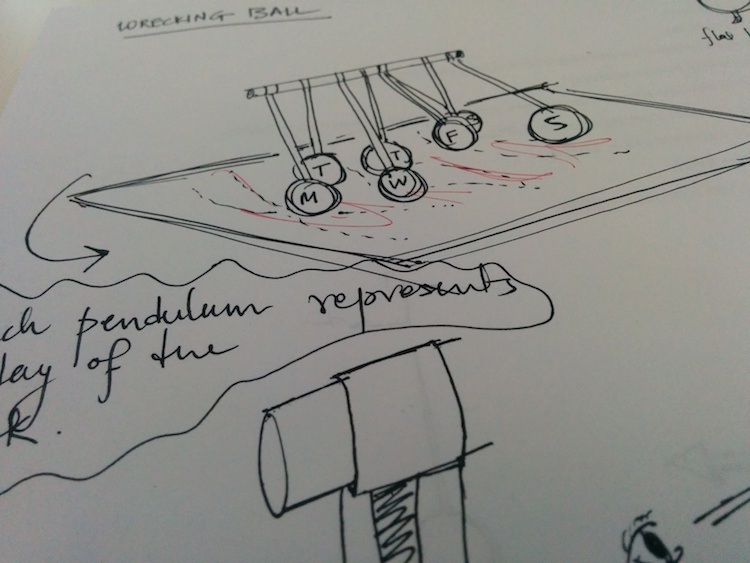 WRECKING BALL
flat
T
T
F
S
M
W
ch pendulum represents
day of the
k.